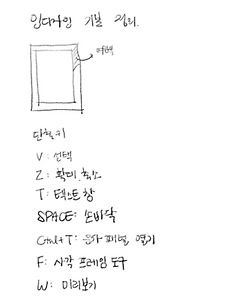 인디자인 기본 정리.
여백
단축키
V : 선택
Z : 확대, 축소
T : 텍스트 창
SPACE : 손바닥
Ctrl+T : 문자 패널 열기
F : 사각 프레임 도구
W : 미리보기